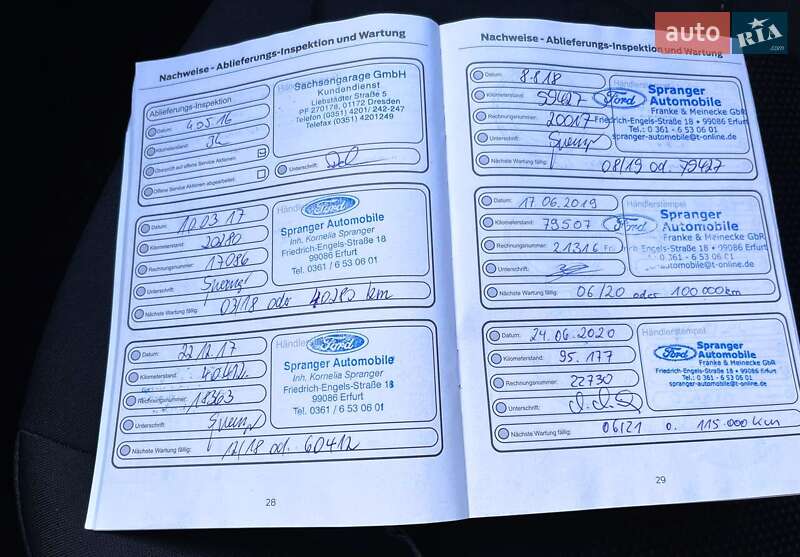 auto RIA.com
Nachweise - Ablieferungs-Inspektion und Wartung
Ablieferungs-Inspektion
Datum: 4.05.16
Kilometerstand: 34
Überprüft auf offene Service Aktionen:
Offene Service Aktionen abgearbeitet:
Sachsengarage GmbH
Kundendienst
Liebstädter Straße 5
PF 270178, 01172 Dresden
Telefon (0351) 4201/ 242-247
Telefax (0351) 4201249
Unterschrift:
Datum: 10.03.17
Kilometerstand: 20280
Rechnungsnummer: 17086
Unterschrift:
Nächste Wartung fällig: 03/18 oder 40280 km
Händlerstempel
Ford
Spranger Automobile
Inh. Kornelia Spranger
Friedrich-Engels-Straße 18
99086 Erfurt
Tel. 0361 / 6 53 06 01
Datum: 22.12.17
Kilometerstand: 40412
Rechnungsnummer: 18363
Unterschrift:
Nächste Wartung fällig: 12/18 od. 60412
Ford
Spranger Automobile
Inh. Kornelia Spranger
Friedrich-Engels-Straße 18
99086 Erfurt
Tel. 0361 / 6 53 06 01
28
Nachweise - Ablieferungs-Inspektion und Wartung
Datum: 8.8.18
Kilometerstand: 59427
Rechnungsnummer: 20017
Unterschrift:
Nächste Wartung fällig: 08/19 od. 79427
Händlerstempel
Ford
Spranger
Automobile
Franke & Meinecke GbR
Friedrich-Engels-Straße 18 • 99086 Erfurt
Tel.: 0 361 - 6 53 06 01
spranger-automobile@t-online.de
Datum: 17.06.2019
Kilometerstand: 79507
Rechnungsnummer: 21316
Unterschrift:
Nächste Wartung fällig: 06/20 oder 100 000 km
Händlerstempel
Ford
Spranger
Automobile
Franke & Meinecke GbR
Friedrich-Engels-Straße 18 • 99086 Erfurt
0 361 - 6 53 06 01
automobile@t-online.de
Datum: 24.06.2020
Kilometerstand: 95.177
Rechnungsnummer: 22730
Unterschrift:
Nächste Wartung fällig: 06/21 o. 115.000 km
Händlerstempel
Ford
Spranger
Automobile
Franke & Meinecke GbR
Friedrich-Engels-Straße 18 • 99086 Erfurt
Tel.: 0 361 - 6 53 06 01
spranger-automobile@t-online.de
29